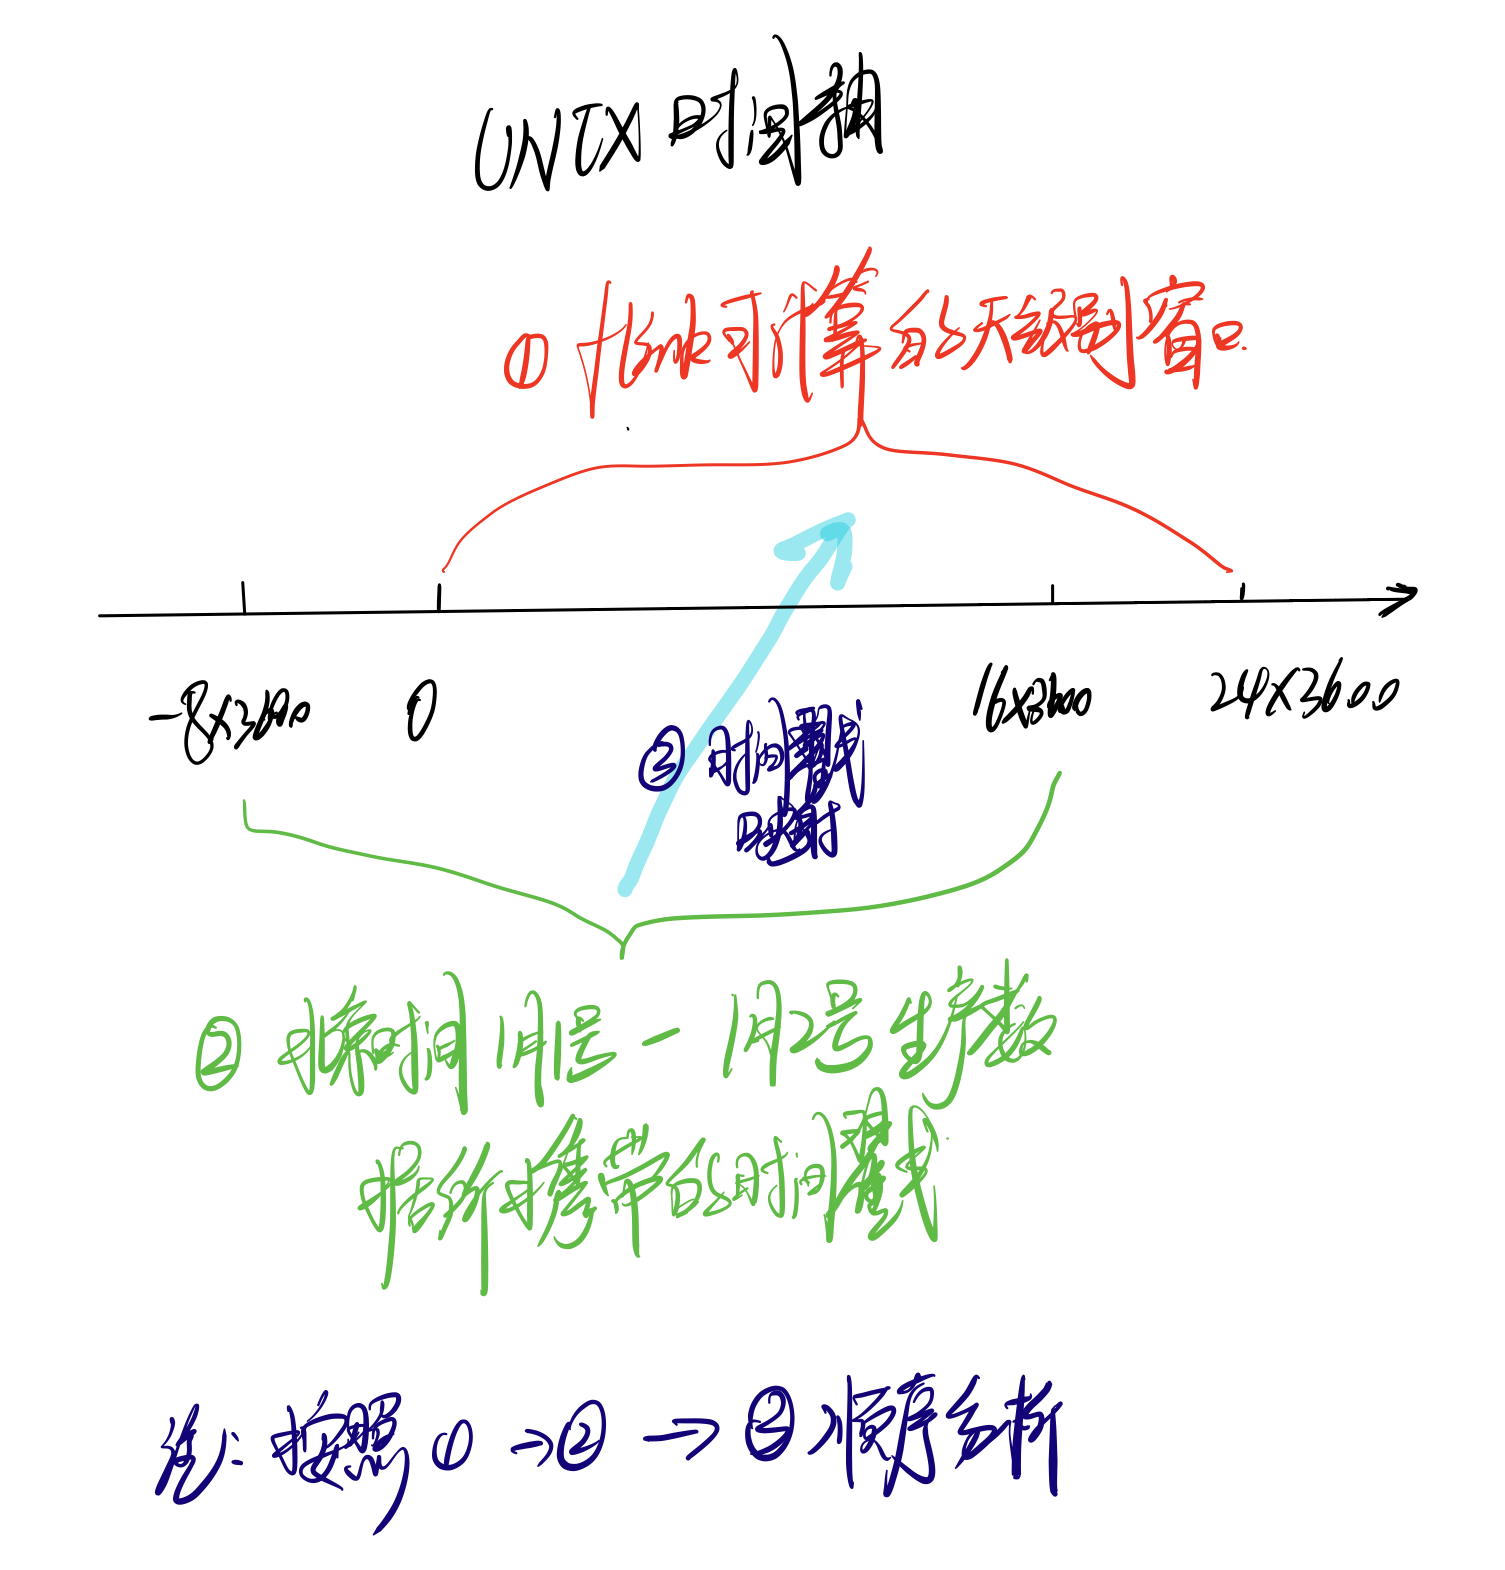 UNIX 时间轴
① flink可计算的天级别窗口.
-8x3600 0 16x3600 24x3600
③ 时间戳
映射
② 北京时间1月1号 - 1月2号生产数
据所携带的时间戳
注: 按照 ① → ② → ③ 顺序分析